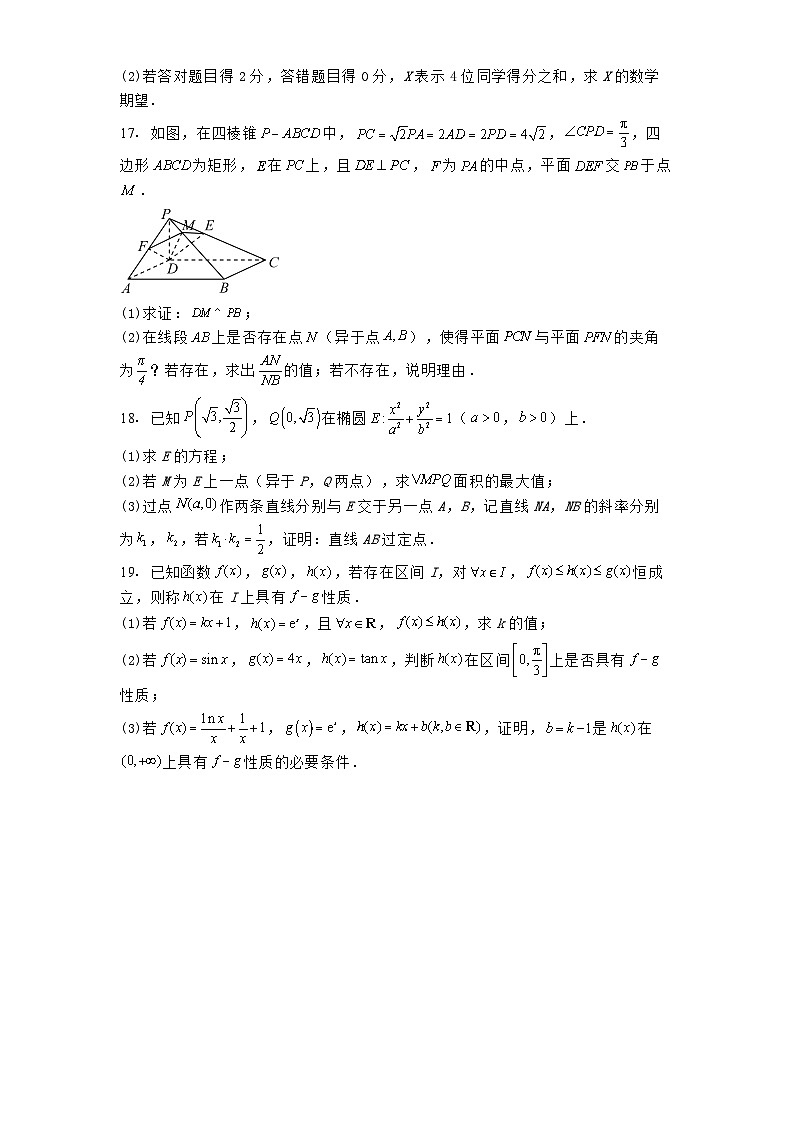 (2)若答对题目得 2 分，答错题目得 0 分，X 表示 4 位同学得分之和，求 X 的数学
期望．
17． 如图，在四棱锥 P－ABCD 中， PC = √2PA = 2AD = 2PD = 4√2 ，∠CPD = π/3 ，四
边形 ABCD 为矩形， E 在 PC 上，且 DE ⊥ PC ， F 为 PA 的中点，平面 DEF 交 PB 于点
M ．
P
M E
F
D C
A B
(1)求证： DM ^ PB ；
(2)在线段 AB 上是否存在点 N （异于点 A, B ），使得平面 PCN 与平面 PFN 的夹角
为 π/4 ？若存在，求出 AN/NB 的值；若不存在，说明理由．
18． 已知 P(√3, √3/2) ， Q(0, √3) 在椭圆 E: x²/a² + y²/b² = 1（ a > 0 ， b > 0 ）上．
(1)求 E 的方程；
(2)若 M 为 E 上一点（异于 P，Q 两点），求 VMPQ 面积的最大值；
(3)过点 N(a,0) 作两条直线分别与 E 交于另一点 A，B，记直线 NA，NB 的斜率分别
为 k₁ ， k₂ ，若 k₁·k₂ = 1/2 ，证明：直线 AB 过定点．
19． 已知函数 f(x) ， g(x) ， h(x) ，若存在区间 I，对 ∀x∈I ， f(x) ≤ h(x) ≤ g(x) 恒成
立，则称 h(x) 在 I 上具有 f－g 性质．
(1)若 f(x) = kx+1 ， h(x) = eˣ ，且 ∀x∈R ， f(x) ≤ h(x) ，求 k 的值；
(2)若 f(x) = sin x ， g(x) = 4x ， h(x) = tan x ，判断 h(x) 在区间 [0, π/3] 上是否具有 f－g
性质；
(3)若 f(x) = ln x/x + 1/x + 1 ， g(x) = eˣ ， h(x) = kx+b(k,b∈R) ，证明， b = k－1 是 h(x) 在
(0,+∞) 上具有 f－g 性质的必要条件．